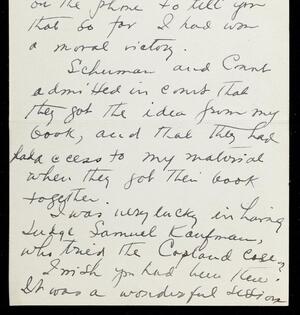 on the phone to tell you
that so far I had won
a moral victory.
Schuman and
admitted in court that
they got the idea from my
book, and that they had
had access to my material
when they got their book
together.
I was very lucky in having
Judge Samuel Kaufman,
who tried the Copland case,
I wish you had been here.
It was a wonderful session